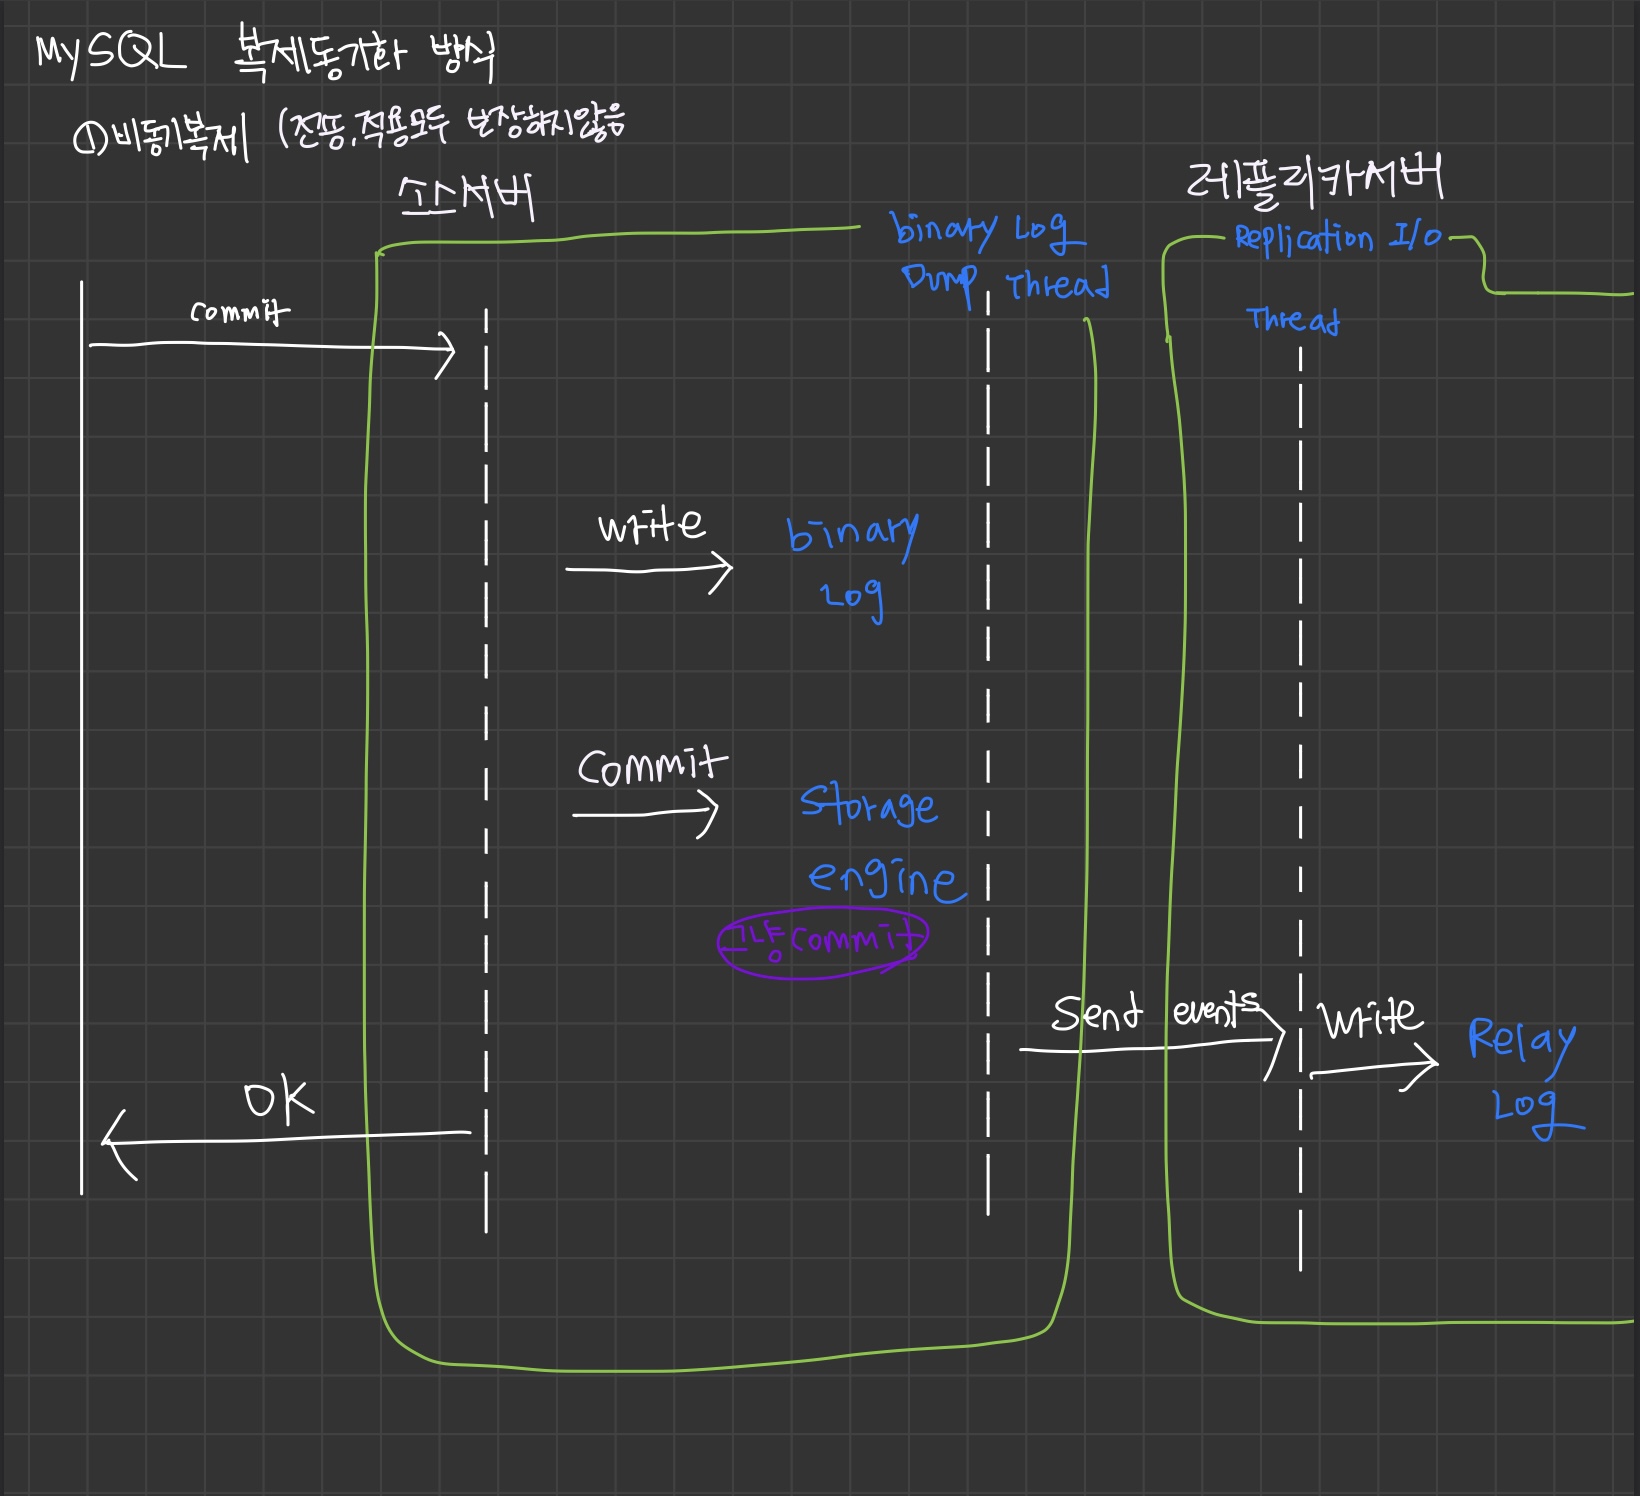 MySQL 복제동기화 방식
①비동기복제 (전송,적용모두 보장하지않음
소스서버
레플리카서버
binary Log
Dump Thread
Replication I/O
Thread
commit
write
binary
Log
Commit
Storage
engine
그냥commit
Send events
Write
Relay
Log
OK